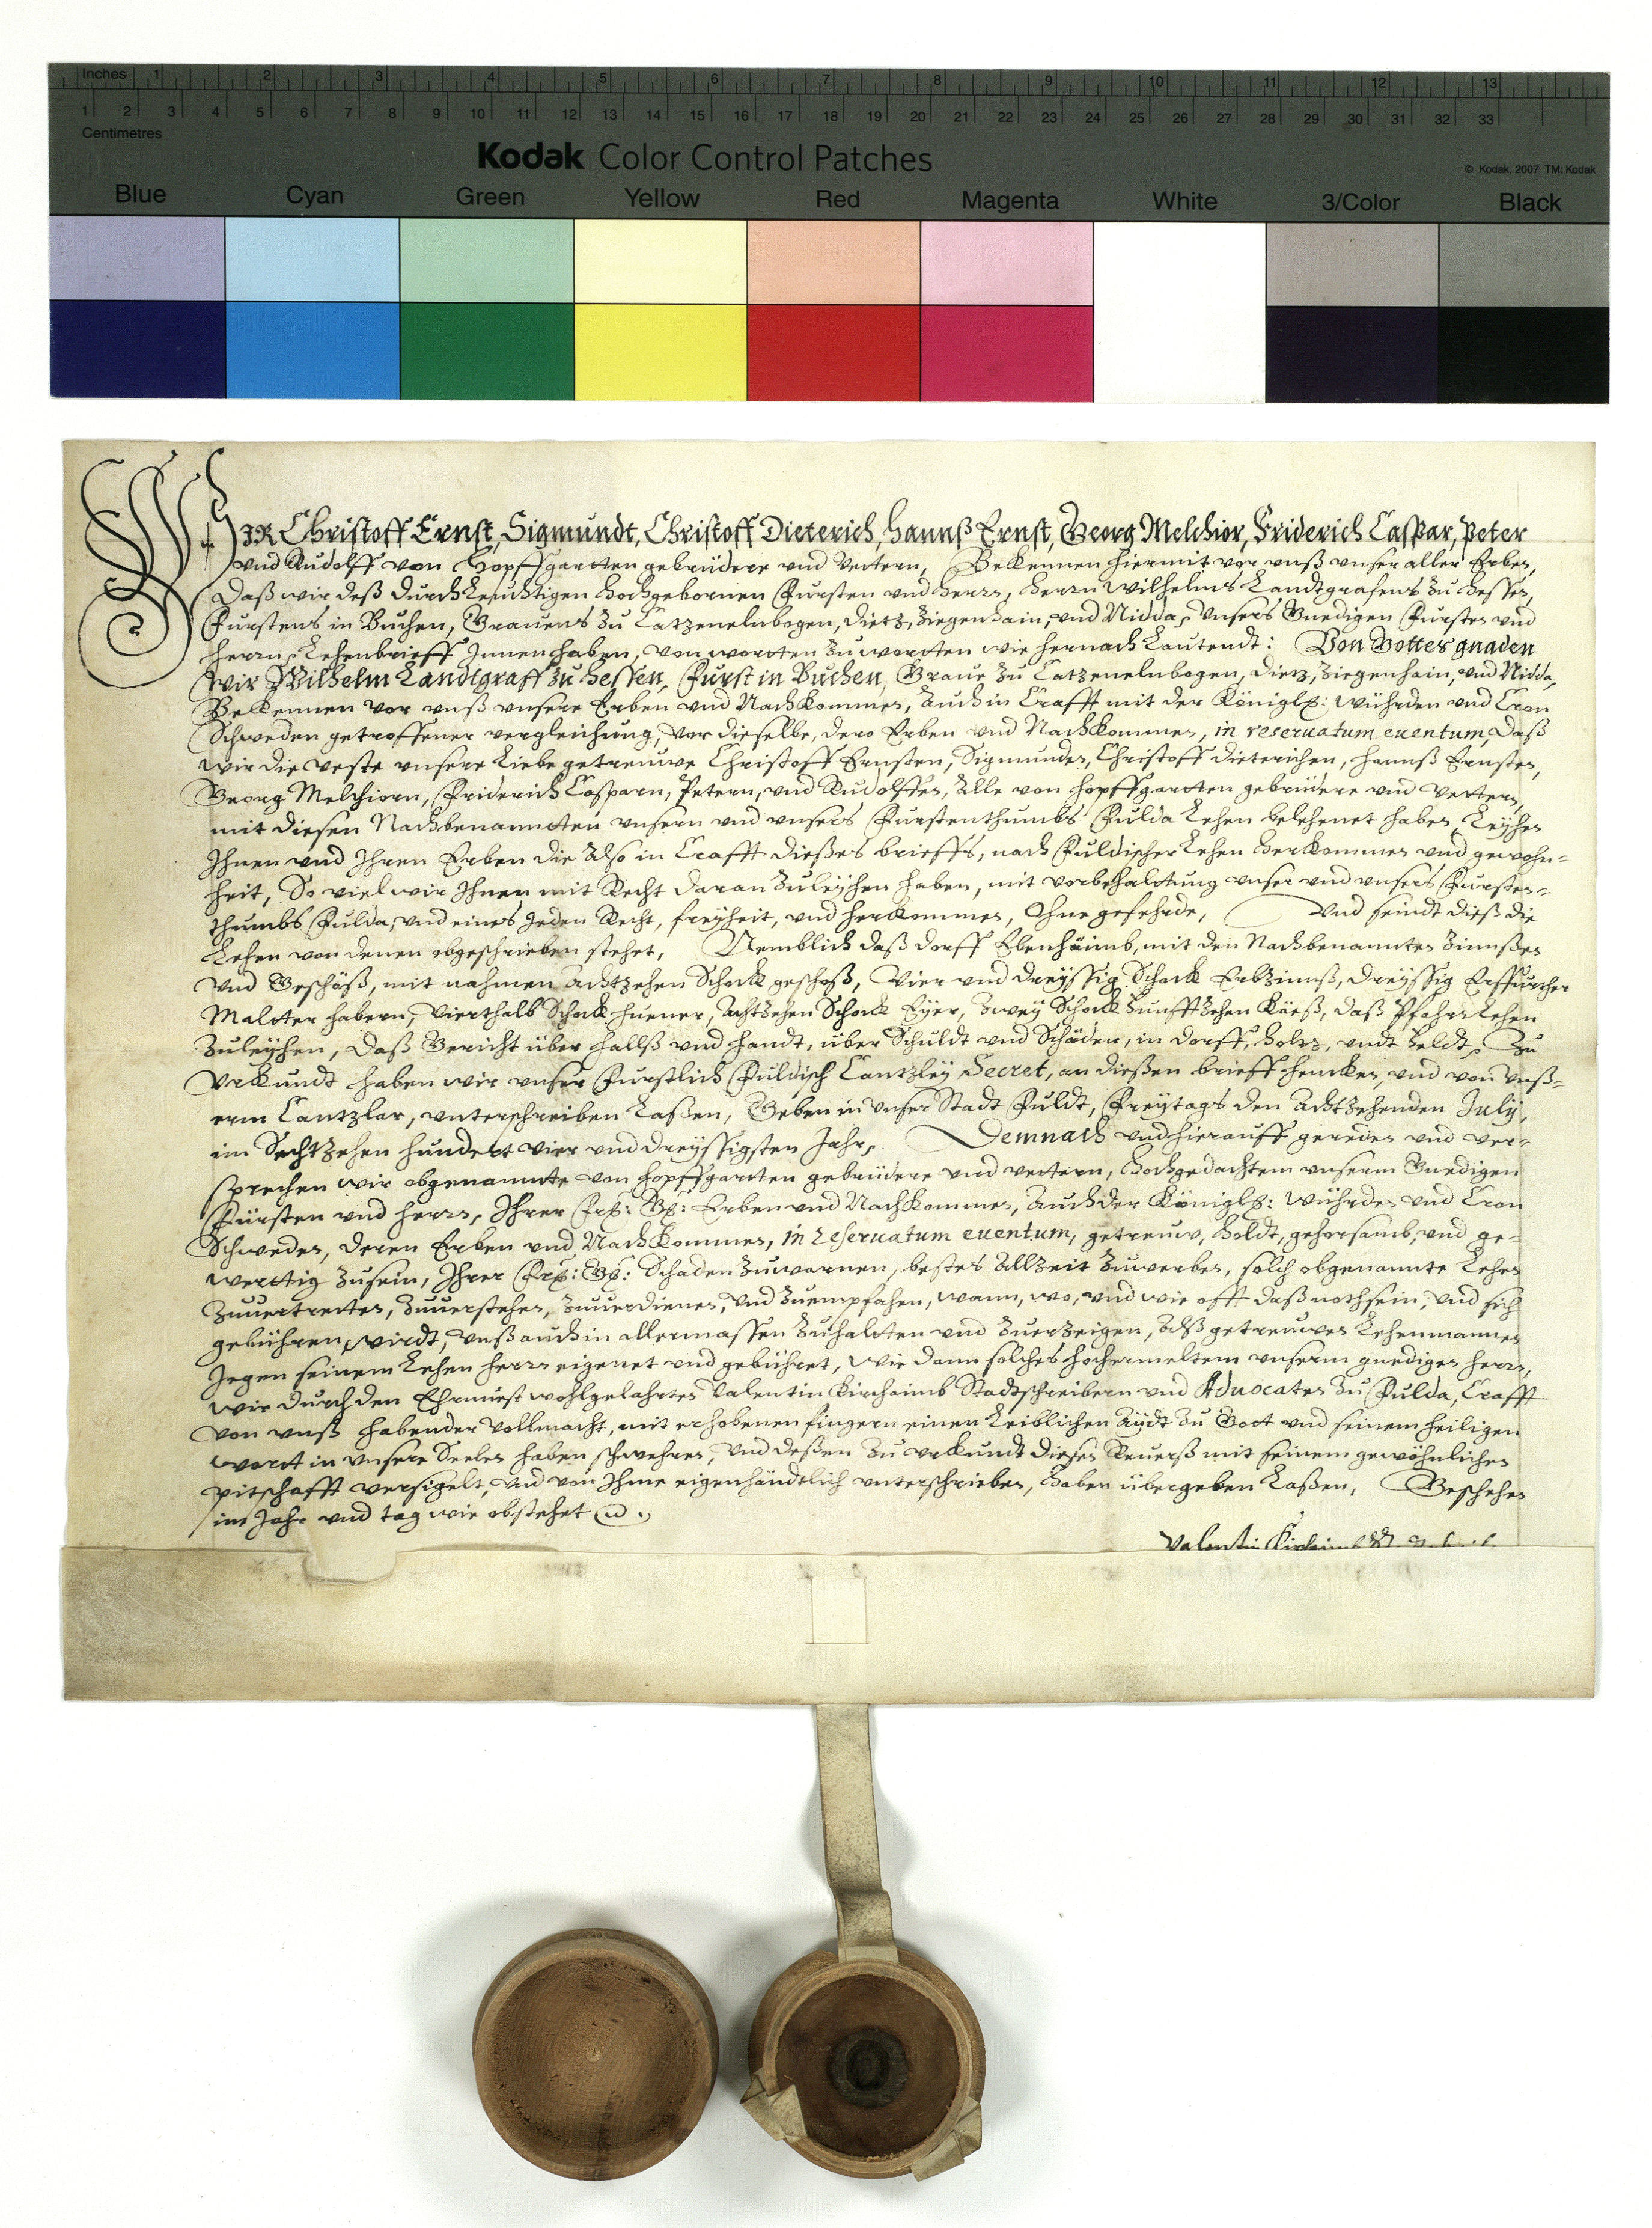 Inches 1 2 3 4 5 6 7 8 9 10 11 12 13
1 2 3 4 5 6 7 8 9 10 11 12 13 14 15 16 17 18 19 20 21 22 23 24 25 26 27 28 29 30 31 32 33
Centimetres
Kodak Color Control Patches
© Kodak, 2007 TM: Kodak
Blue Cyan Green Yellow Red Magenta White 3/Color Black
WJR Christoff Ernst, Sigmundt, Christoff Dieterich, Hannß Ernst, Georg Melchior, Friderich Caspar, Peter
und Rudolff von Hopffgartten gebrüdere und Vettern, Bekennen hiermit vor unß unser aller Erben,
Daß wir deß Durchleuchtigen Hochgebornen Fursten und Herrn, Herrn Wilhelms Landtgrafens zu Hessen,
Furstens in Buchen, Gravens zu Catzenelnbogen, Dietz, Ziegenhain, und Nidda, Unsers Gnedigen Fursten und
Herrn, Lehenbrieff Innenhaben, von wortten zu wortten wie hernach Lautendt: Von Gottes gnaden
Wir Wilhelm Landtgraff zu Hessen, Furst in Buchen, Grave zu Catzenelnbogen, Dietz, Ziegenhain, und Nidda,
Bekennen vor unß unsere Erben und Nachkommen, Auch in Crafft mit der Königlr: Wührden und Cron
Schweden getroffener vergleichung, vor dieselbe, dero Erben und Nachkommen, in reservatum eventum, Daß
wir die veste unsere Liebe getreuwe Christoff Ernsten, Sigmunden, Christoff Dieterichen, Hannß Ernsten,
Georg Melchiorn, Friderich Casparn, Petern, und Rudolffen, Alle von Hopffgartten gebrüdere und Vettern,
mit diesen Nachbenanntten unsern und unsers Furstenthumbs Fulda Lehen belehenet haben, Leyhen
Ihnen und Ihren Erben die Also in Crafft dießes brieffs, nach Fuldischer Lehen Herkommen und gewohn=
heit, So viel wir Ihnen mit Recht daran zuleyhen haben, mit vorbehalttung unser und unsers Fursten=
thumbs Fulda, und eines Jeden Recht, freyheit, und herkommen, Ohne gefehrde, Und seindt dieß die
Lehen von denen obgeschrieben stehet, Nemblich daß dorff Ebenhäimb, mit den Nachbenannten Zinnßen
und Geschäß, mit nahmen Achtzehen Schock geschoß, Vier und dreyssig Schock Erbzinnß, dreyssig Erffurther
Maltter habern, Vierthalb Schock huener, Achtzehen Schock Eyer, Zwey Schock Funfftzehen Käeß, daß Pfahrlehen
zuleyhen, Daß Gericht über Hallß und Handt, über Schuldt und Schäden, in dorff, Holtz, undt Feldt, Zu
Urkundt haben wir unser Furstlich Fuldisch Cantzley Secret, an dießen brieff hencken, und von Unß=
erm Cantzlar, unterschreiben Laßen, Geben in Unser Stadt Fuldt, Freytags den Achtzehenden July,
im Sechtzehen hundert vier und dreyssigsten Jahr, Demnach und hierauff gereden und ver=
sprechen wir obgenannte von Hopffgartten gebrüdere und vettern, Hochgedachtem unserm Gnedigen
Fürsten und Herrn, Ihrer Frl: Gn: Erben und Nachkommen, Auch der Königlr: Wührden und Cron
Schweden, deren Erben und Nachkommen, in reservatum eventum, getreuw, Holdt, gehorsamb, und ge=
werttig zusein, Ihrer Frl: Gn: Schaden zuwarnen, bestes Allzeit zuwerben, solch obgenannte Lehen
zuvertretten, zuverstehen, zuverdienen, und zuempfahen, wann, wo, und wie offt daß noth sein, und sich
gebühren wirdt, unß auch in allermassen zuhaltten und zuerzeigen, Alß getreuwen Lehenmannen
Jegen seinem Lehen Herrn eigenet und gebühret, wie dann solches hochermeltem unserm gnedigen Herrn,
wir durch den Ehrnvest wohlgelahrten Valentin Kirchaimb Stadtschreibern und Advocaten zu Fulda, Crafft
von unß habender Vollmacht, mit erhobenen fingern einen Leiblichen Aydt zu Gott und seinem heiligen
wortt in unsere Seelen haben schwehren, und deßen zu urkundt dießen Reverß mit seinem gewöhnlichen
pitschafft versigelt, und von Ihme eigenhändtlich unterschrieben, Haben übergeben Laßen, Geschehen
im Jahr und tag wie obstehet
Valentin Kirchaimb